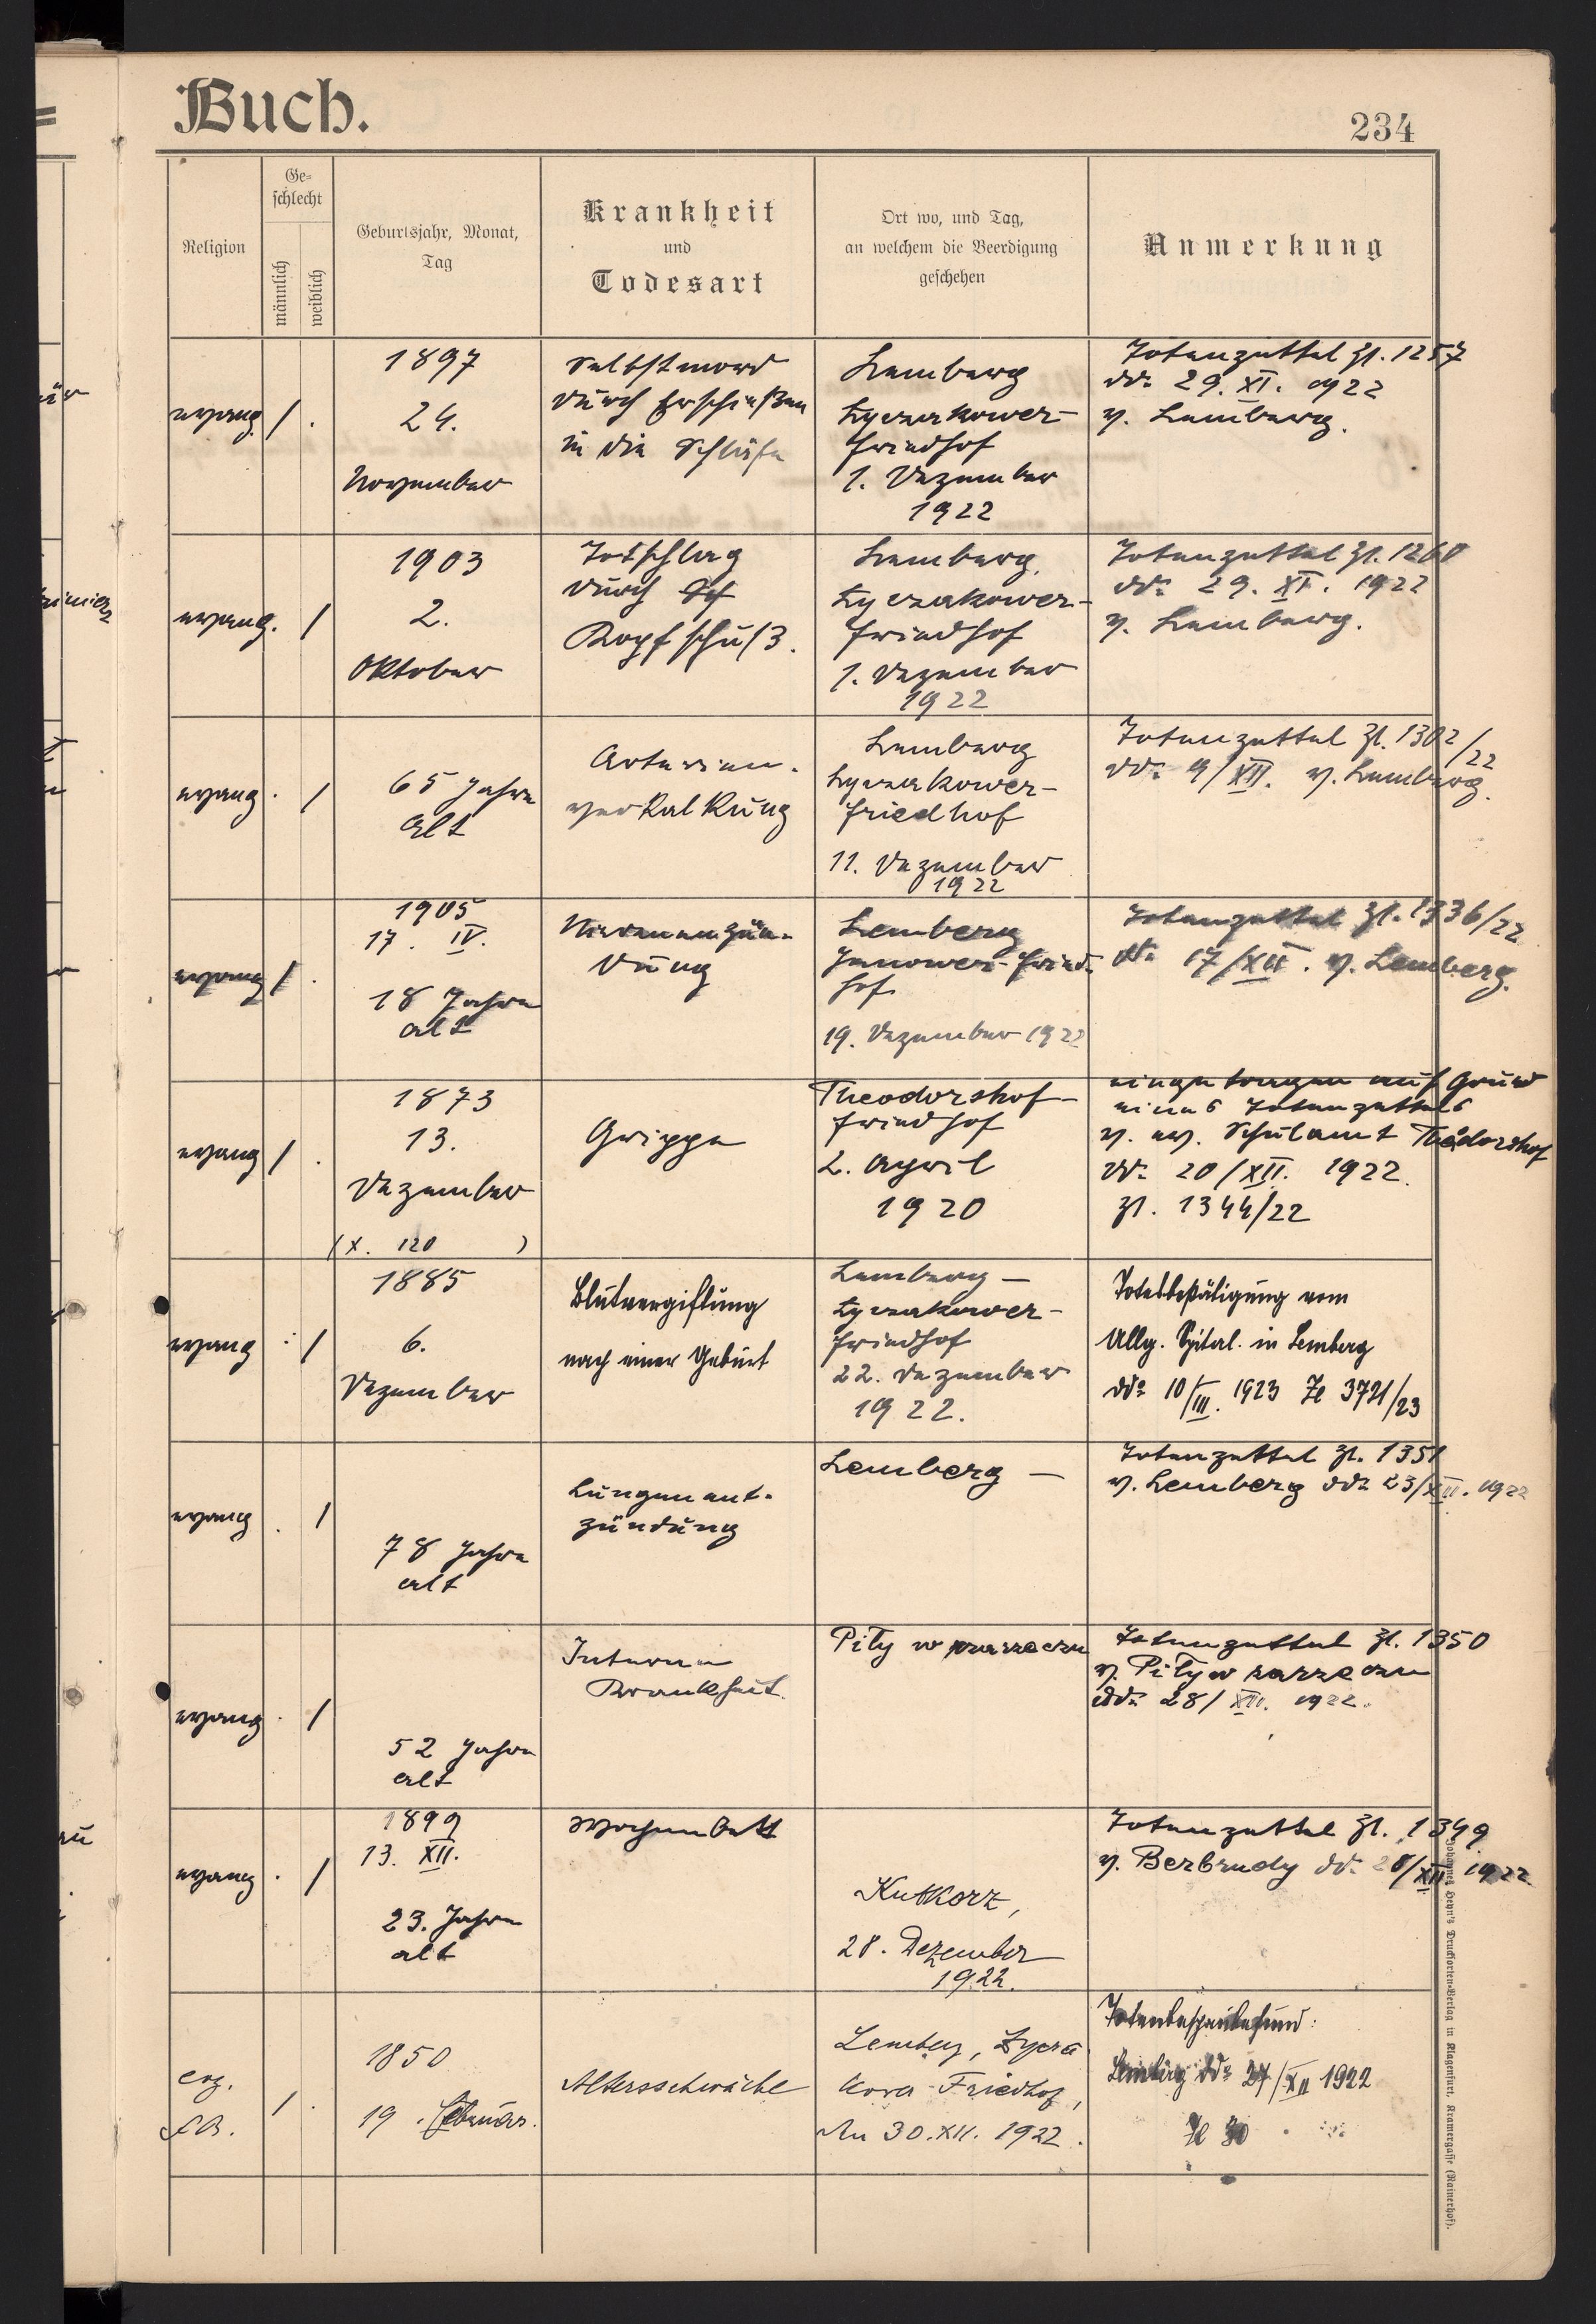 Buch.
234
Religion
Ge-
schlecht
männlich
weiblich
Geburtsjahr, Monat,
Tag
Krankheit
und
Todesart
Ort wo, und Tag,
an welchem die Beerdigung
geschehen
Anmerkung
evang.
/ .
1897
24.
November
Selbstmord
durch Erschießen
in die Schläfe
Lemberg
Lyczakower-
friedhof
1. Dezember
1922
Totenzettel Zl. 1257
ddo 29. XI. 1922
v. Lemberg.
evang.
/
1903
2.
Oktober
Totschlag
durch
Kopfschuß.
Lemberg.
Lyczakower-
friedhof
1. Dezember
1922
Totenzettel Zl. 1260
ddo 29. XI. 1922
v. Lemberg.
evang
. /
65 Jahre
alt
Arterien-
verkalkung
Lemberg
Lyczakower-
friedhof
11. Dezember
1922
Totenzettel Zl. 1302/22
ddo 9/XII. v. Lemberg.
evang
/ .
1905
17. IV.
18 Jahre
alt
Nierenentzün-
dung
Lemberg
Janower-Fried-
hof
19. Dezember 1922
Totenzettel Zl. 1336/22
ddo 17/XII. v. Lemberg.
evang
/ .
1873
13.
Dezember
(X. 120 )
Grippe
Theodorshof-
friedhof
2. April
1920
eingetragen auf Grund
eines Totenzettels
v. ev. Schulamt Theodorshof
ddo 20/XII. 1922.
Zl. 1344/22
evang
. /
1885
6.
Dezember
Blutvergiftung
nach einer Geburt
Lemberg —
Lyczakower-
friedhof
22. Dezember
1922.
Totesbestätigung vom
Allg. Spital. in Lemberg
ddo 10/III. 1923 Zl 3721/23
evang
. /
78 Jahre
alt
Lungenent-
zündung
Lemberg —
Totenzettel Zl. 1351
v. Lemberg ddo 23/XII. 1922
evang
. /
52 Jahre
alt
Interne
Krankheit.
Totenzettel Zl. 1350
ddo 28/XII. 1922.
evang
. /
1899
13. XII.
23. Jahre
alt
Wochenbett
Kutkorz,
28. Dezember
1922.
Totenzettel Zl. 1349
v. Berbrudy ddo 28/XII 1922
evg.
AB.
/ .
1850
19. Februar.
Altersschwäche
Lemberg, Lycza
kower-Friedhof,
Am 30. XII. 1922.
Totenbeschaubefund:
Lemberg ddo 27/XII 1922
Zl 30
Johannes Heyn's Drucksorten-Verlag in Klagenfurt, Kramergasse (Rainerhof).